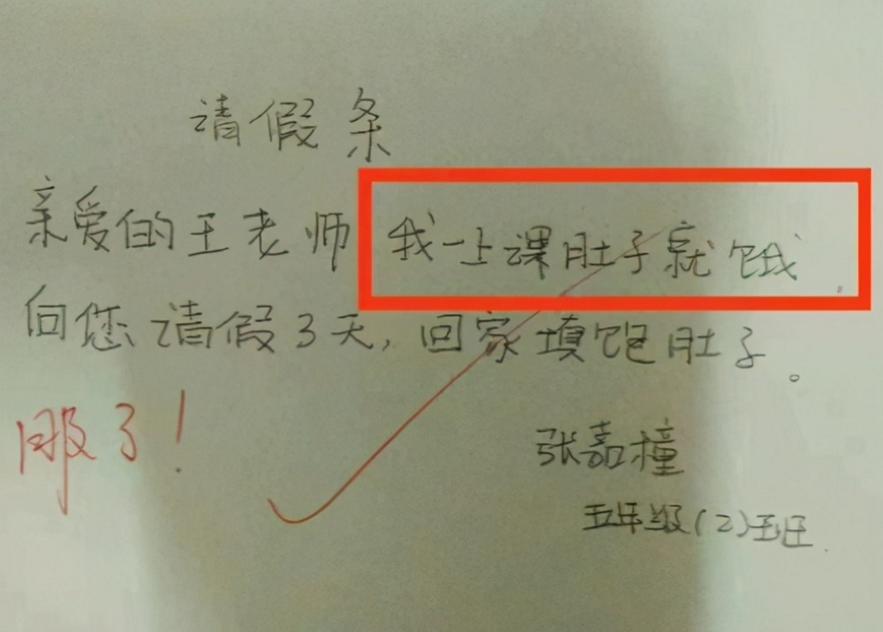 请假条
亲爱的王老师 我一上课肚子就饿
向您请假3天,回家填饱肚子。
服了!
张嘉橦
五年级(2)班